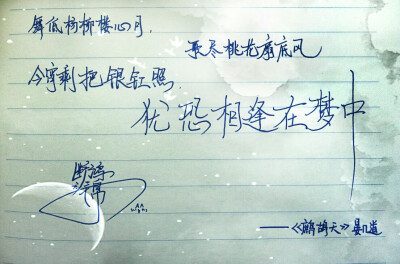 舞低杨柳楼心月.
歌尽桃花扇底风
今宵剩把银缸照.
犹恐相逢在梦中
——《鹧鸪天》晏几道